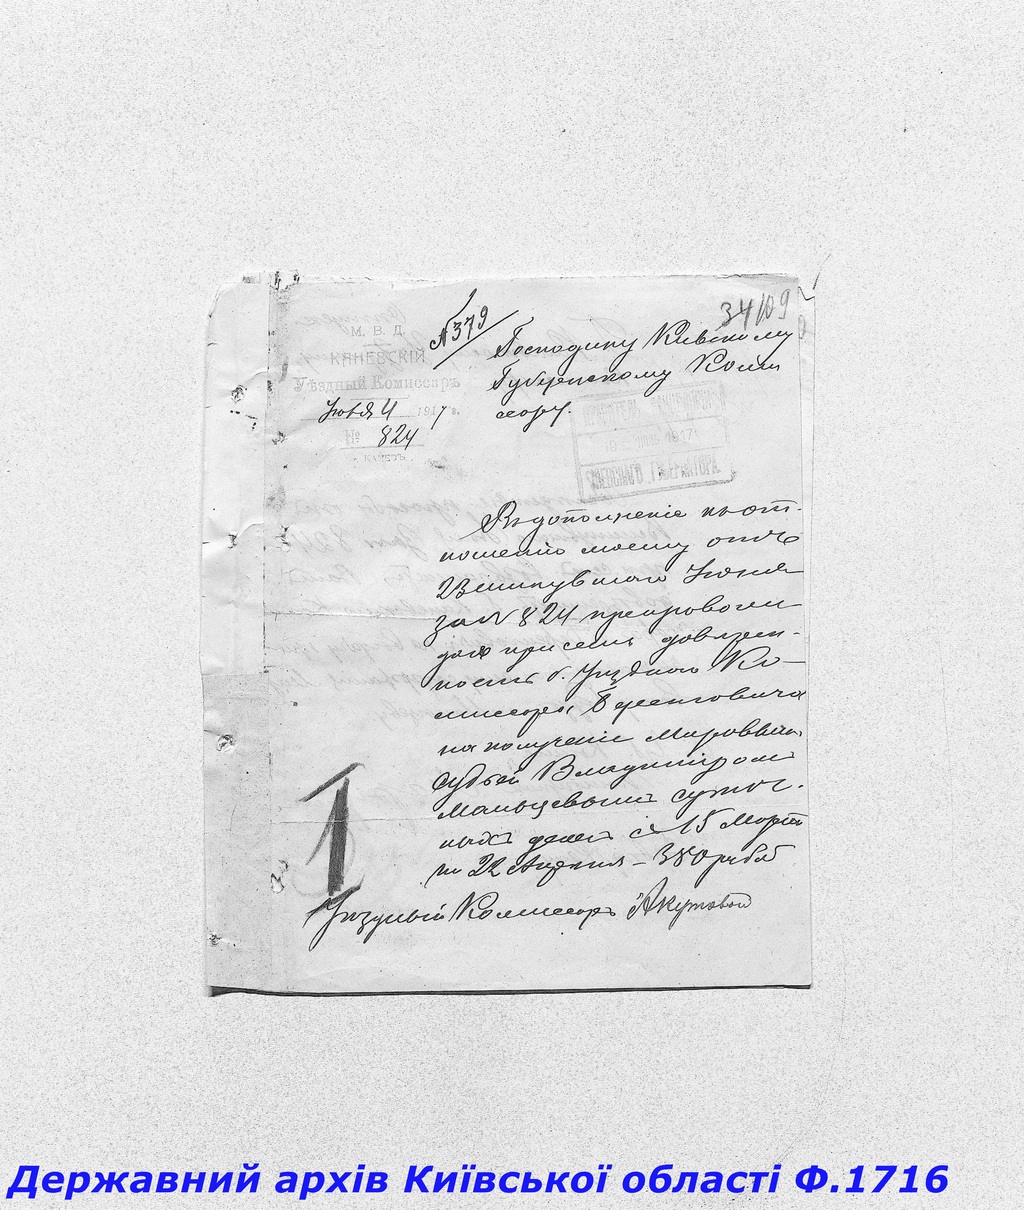 34109
№ 379
М. В. Д.
КАНЕВСКІЙ
Уѣздный Комиссаръ
4 191 7 г.
№ 824
КАНЕВЪ
Господину Кіевскому
Губернскому Комис
сару.
1917
КІЕВСКАГО ГУБЕРНАТОРА
Въ дополненіе къ от-
ношенію моему отъ
23 минувшаго Іюня
за № 824 препровож
даю при семъ довѣрен-
ность б. Уѣзднаго Ко-
миссара
на полученіе Мировымъ
судьей Владиміромъ
Мальцевымъ суточ-
ныхъ денегъ съ 15 Марта
по 22 Апрѣля - 380 рублей
1
Уѣздный Комиссаръ
Державний архів Київської області Ф.1716